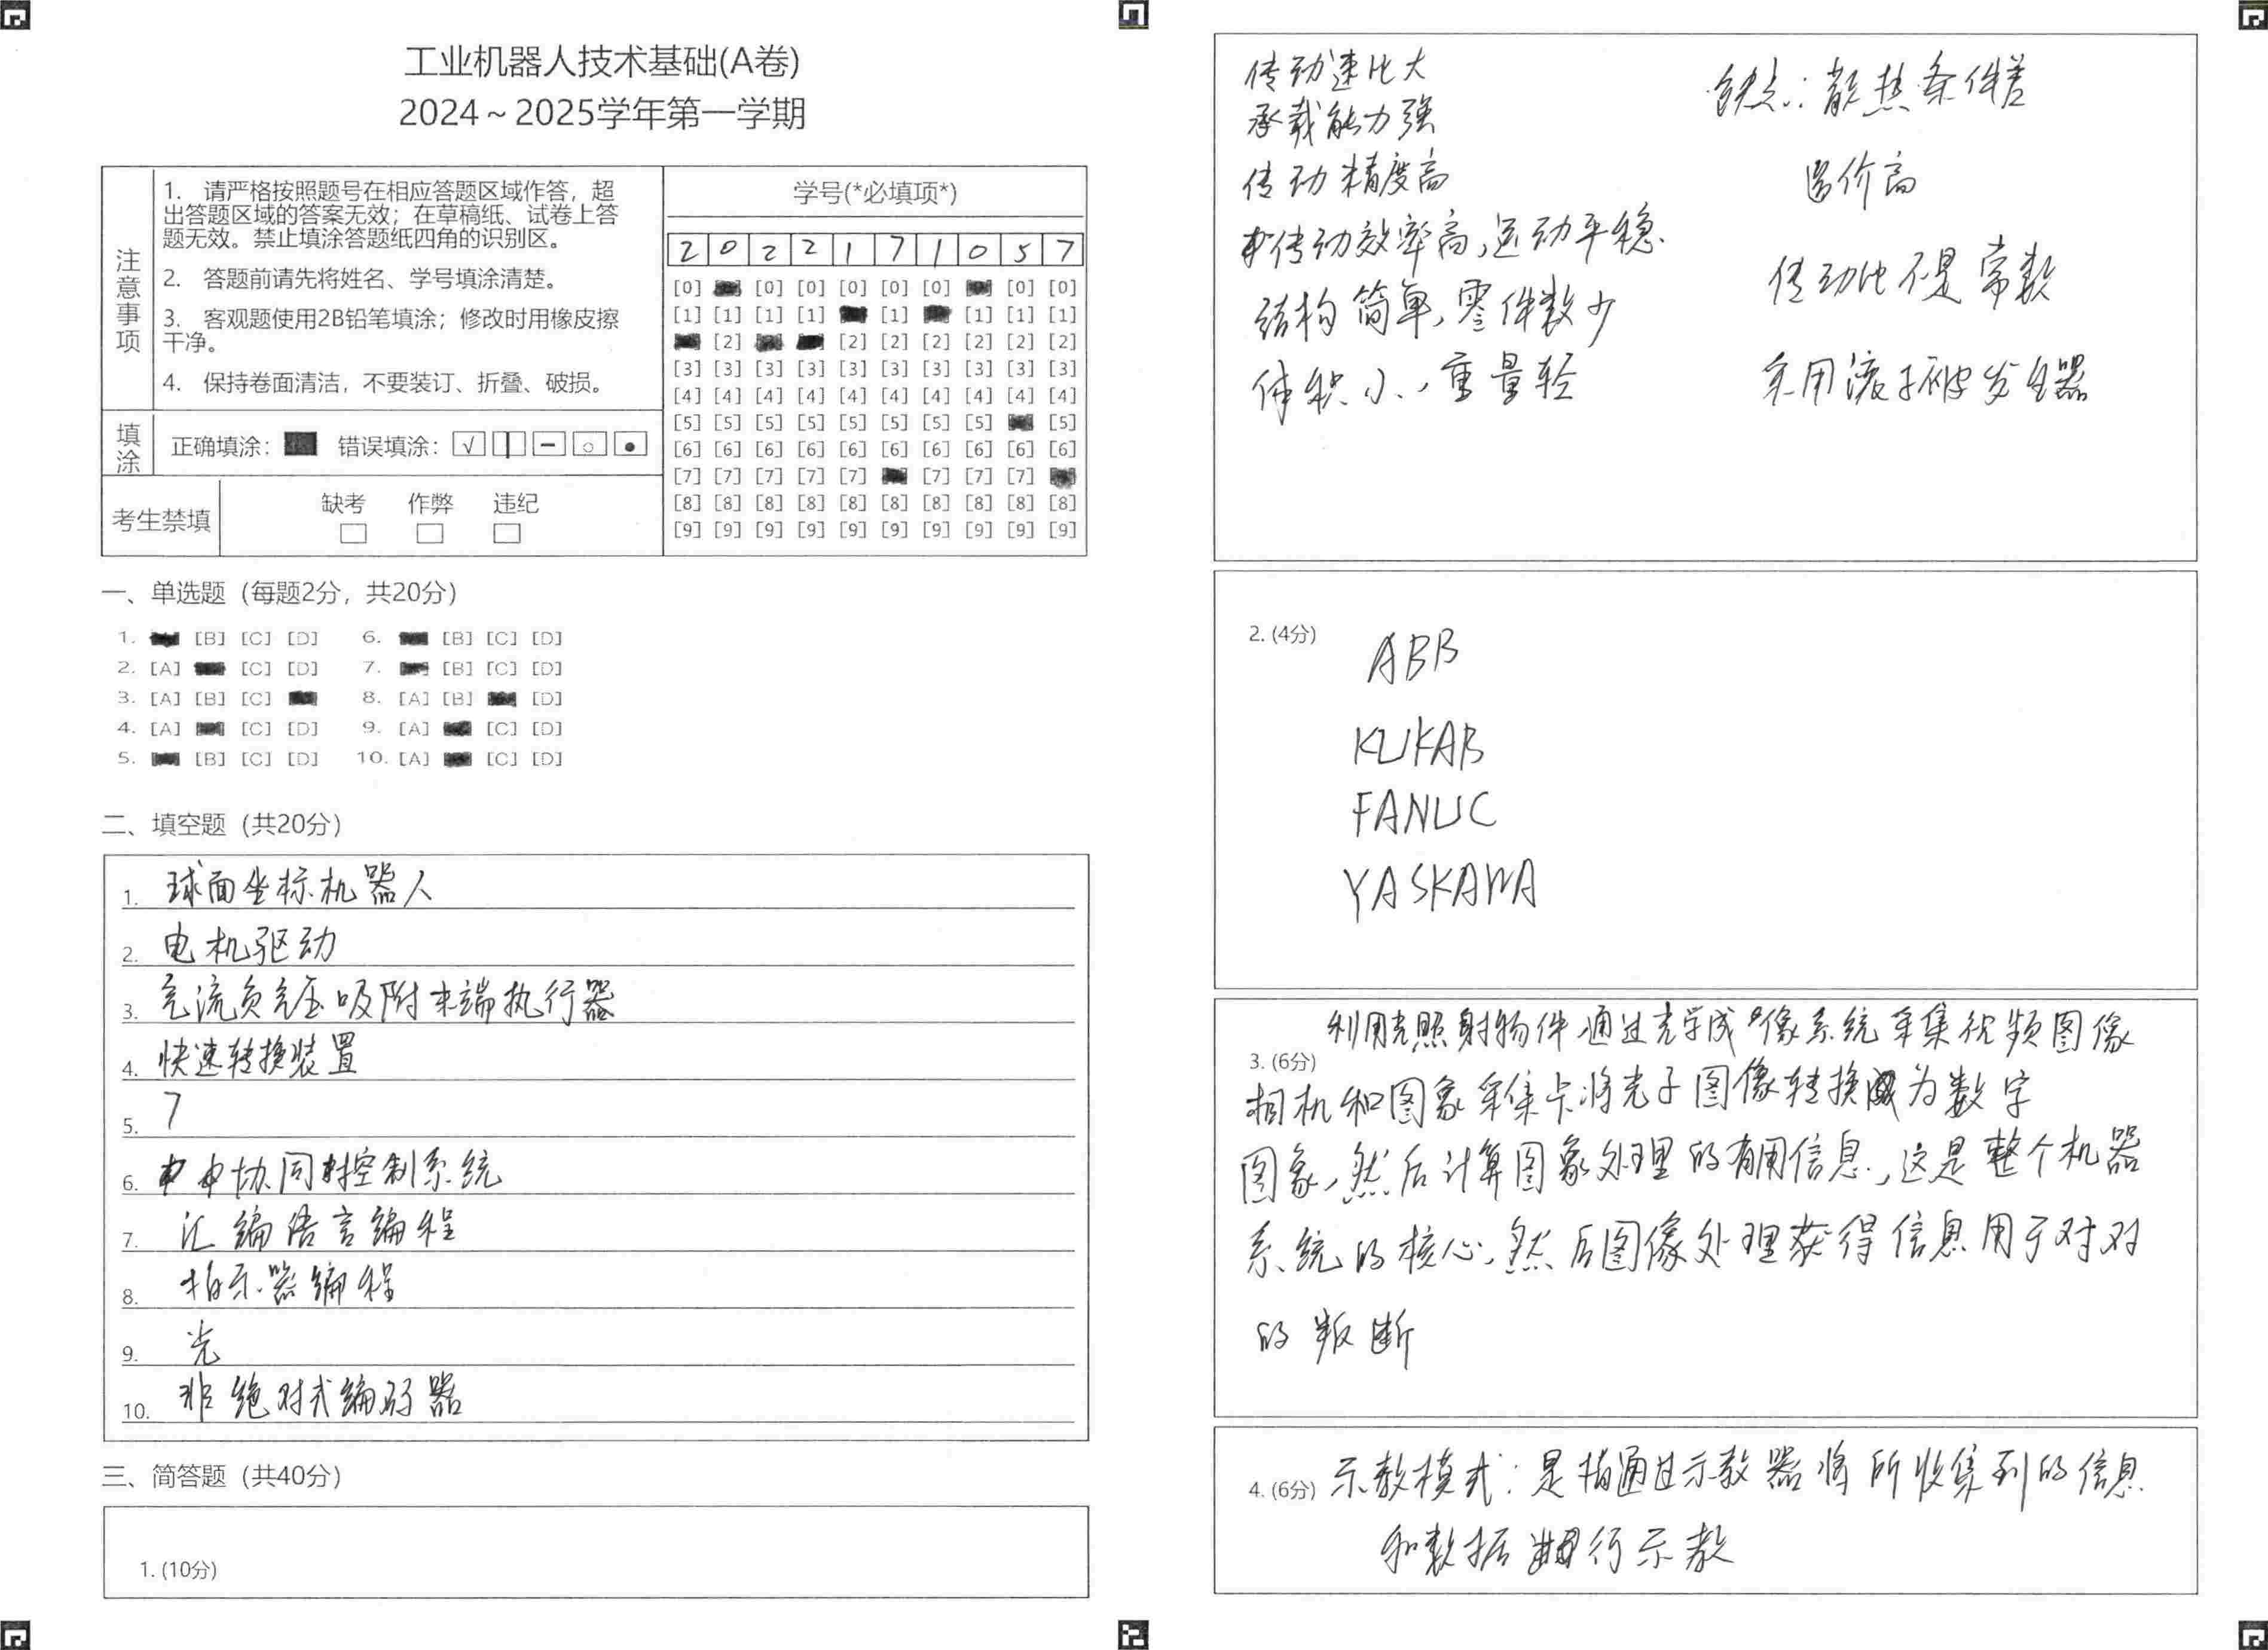 工业机器人技术基础(A卷)
2024~2025学年第一学期
注意事项
1. 请严格按照题号在相应答题区域作答，超
出答题区域的答案无效；在草稿纸、试卷上答
题无效。禁止填涂答题纸四角的识别区。
2. 答题前请先将姓名、学号填涂清楚。
3. 客观题使用2B铅笔填涂；修改时用橡皮擦
干净。
4. 保持卷面清洁，不要装订、折叠、破损。
填涂
正确填涂： 错误填涂：
考生禁填
缺考 作弊 违纪
学号(*必填项*)
2 0 2 2 1 7 1 0 5 7
[0] [0] [0] [0] [0] [0] [0] [0]
[1] [1] [1] [1] [1] [1] [1] [1]
[2] [2] [2] [2] [2] [2] [2]
[3] [3] [3] [3] [3] [3] [3] [3] [3] [3]
[4] [4] [4] [4] [4] [4] [4] [4] [4] [4]
[5] [5] [5] [5] [5] [5] [5] [5] [5]
[6] [6] [6] [6] [6] [6] [6] [6] [6] [6]
[7] [7] [7] [7] [7] [7] [7] [7]
[8] [8] [8] [8] [8] [8] [8] [8] [8] [8]
[9] [9] [9] [9] [9] [9] [9] [9] [9] [9]
一、单选题（每题2分，共20分）
1. [B] [C] [D] 6. [B] [C] [D]
2. [A] [C] [D] 7. [B] [C] [D]
3. [A] [B] [C] 8. [A] [B] [D]
4. [A] [C] [D] 9. [A] [C] [D]
5. [B] [C] [D] 10. [A] [C] [D]
二、填空题（共20分）
1. 球面坐标机器人
2. 电机驱动
3. 气流负气压吸附末端执行器
4. 快速转换装置
5. 7
6. 协同控制系统
7. 汇编语言编程
8. 示器编程
9. 光
10. 非绝对式编码器
三、简答题（共40分）
1. (10分)
传动速比大
承载能力强
传动精度高
传动效率高，运动平稳.
结构简单，零件数少
体积小，重量轻
缺点：散热条件差
造价高
传动比不是常数
采用滚子波发生器
2. (4分)
ABB
KUKAB
FANUC
YASKAWA
利用光照射物件通过光学成像系统采集视频图像
3. (6分)
相机和图象采集卡将光子图像转换为数字
图象，然后计算图象处理的有用信息，这是整个机器
系统的核心，然后图像处理获得信息用于对对
的判断
4. (6分) 示教模式：是指通过示教器将所收集到的信息
和数据进行示教